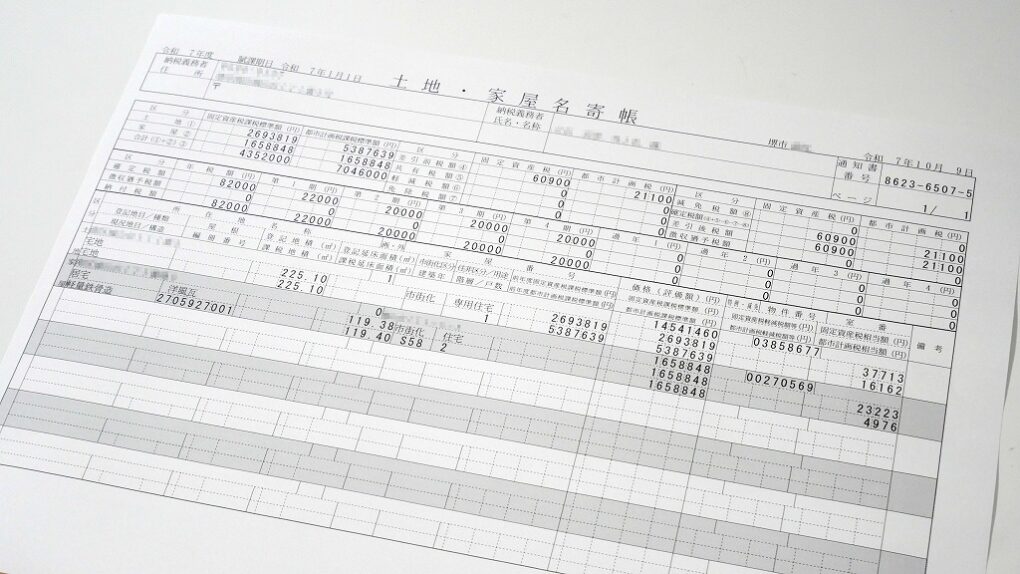 土地・家屋名寄帳
令和 7年度 賦課期日 令和 7年1月1日
納税義務者 住所
〒
納税義務者 氏名・名称
堺市
令和 7年10月 9日
通知書番号 8623-6507-5
ページ 1/ 1
区分 固定資産税課税標準額(円) 都市計画税課税標準額(円) 区分 固定資産税(円) 都市計画税(円) 区分 固定資産税(円) 都市計画税(円)
土地① 2693819 5387639 差引前税額④ 60900 21100 減免税額⑧ 0 0
家屋② 1658848 1658848 共有税額⑤
合計(①+②)③ 4352000 7046000 軽減税額⑥ 差引後税額 60900 21100
免除税額⑦ 徴収猶予税額 60900 21100
区分 年税額(円) 第1期(円) 第2期(円) 第3期(円) 第4期(円) 過年1(円) 過年2(円) 過年3(円) 過年4(円)
確定税額 82000 22000 20000 20000 20000 0 0 0 0
徴収猶予税額 0 0 0 0 0 0 0 0 0
納付税額 82000 22000 20000 20000 20000 0 0 0 0
区分 所在地／酒・所 家屋番号 物件番号 室番 備考
登記地目／種類 屋根 名称 登記地積(㎡) 登記延床面積(㎡) 市街化区分 住宅区分／用途 価格(評価額)(円)
現況地目／構造 課税地積(㎡) 課税延床面積(㎡) 建築年 階層／戸数 固定資産税課税標準額(円) 固定資産税相当額(円)
都市計画税課税標準額(円) 都市計画税相当額(円)
宅地 225.10 1 市街化 専用住宅 14541460 03858677
宅地 225.10 1 2693819 2693819 37713
5387639 5387639 16162
居宅 洋風瓦 0 119.38 市街化 住宅 1658848 00270569
軽量鉄骨造 2705927001 119.40 S58 2 1658848 23223
1658848 4976